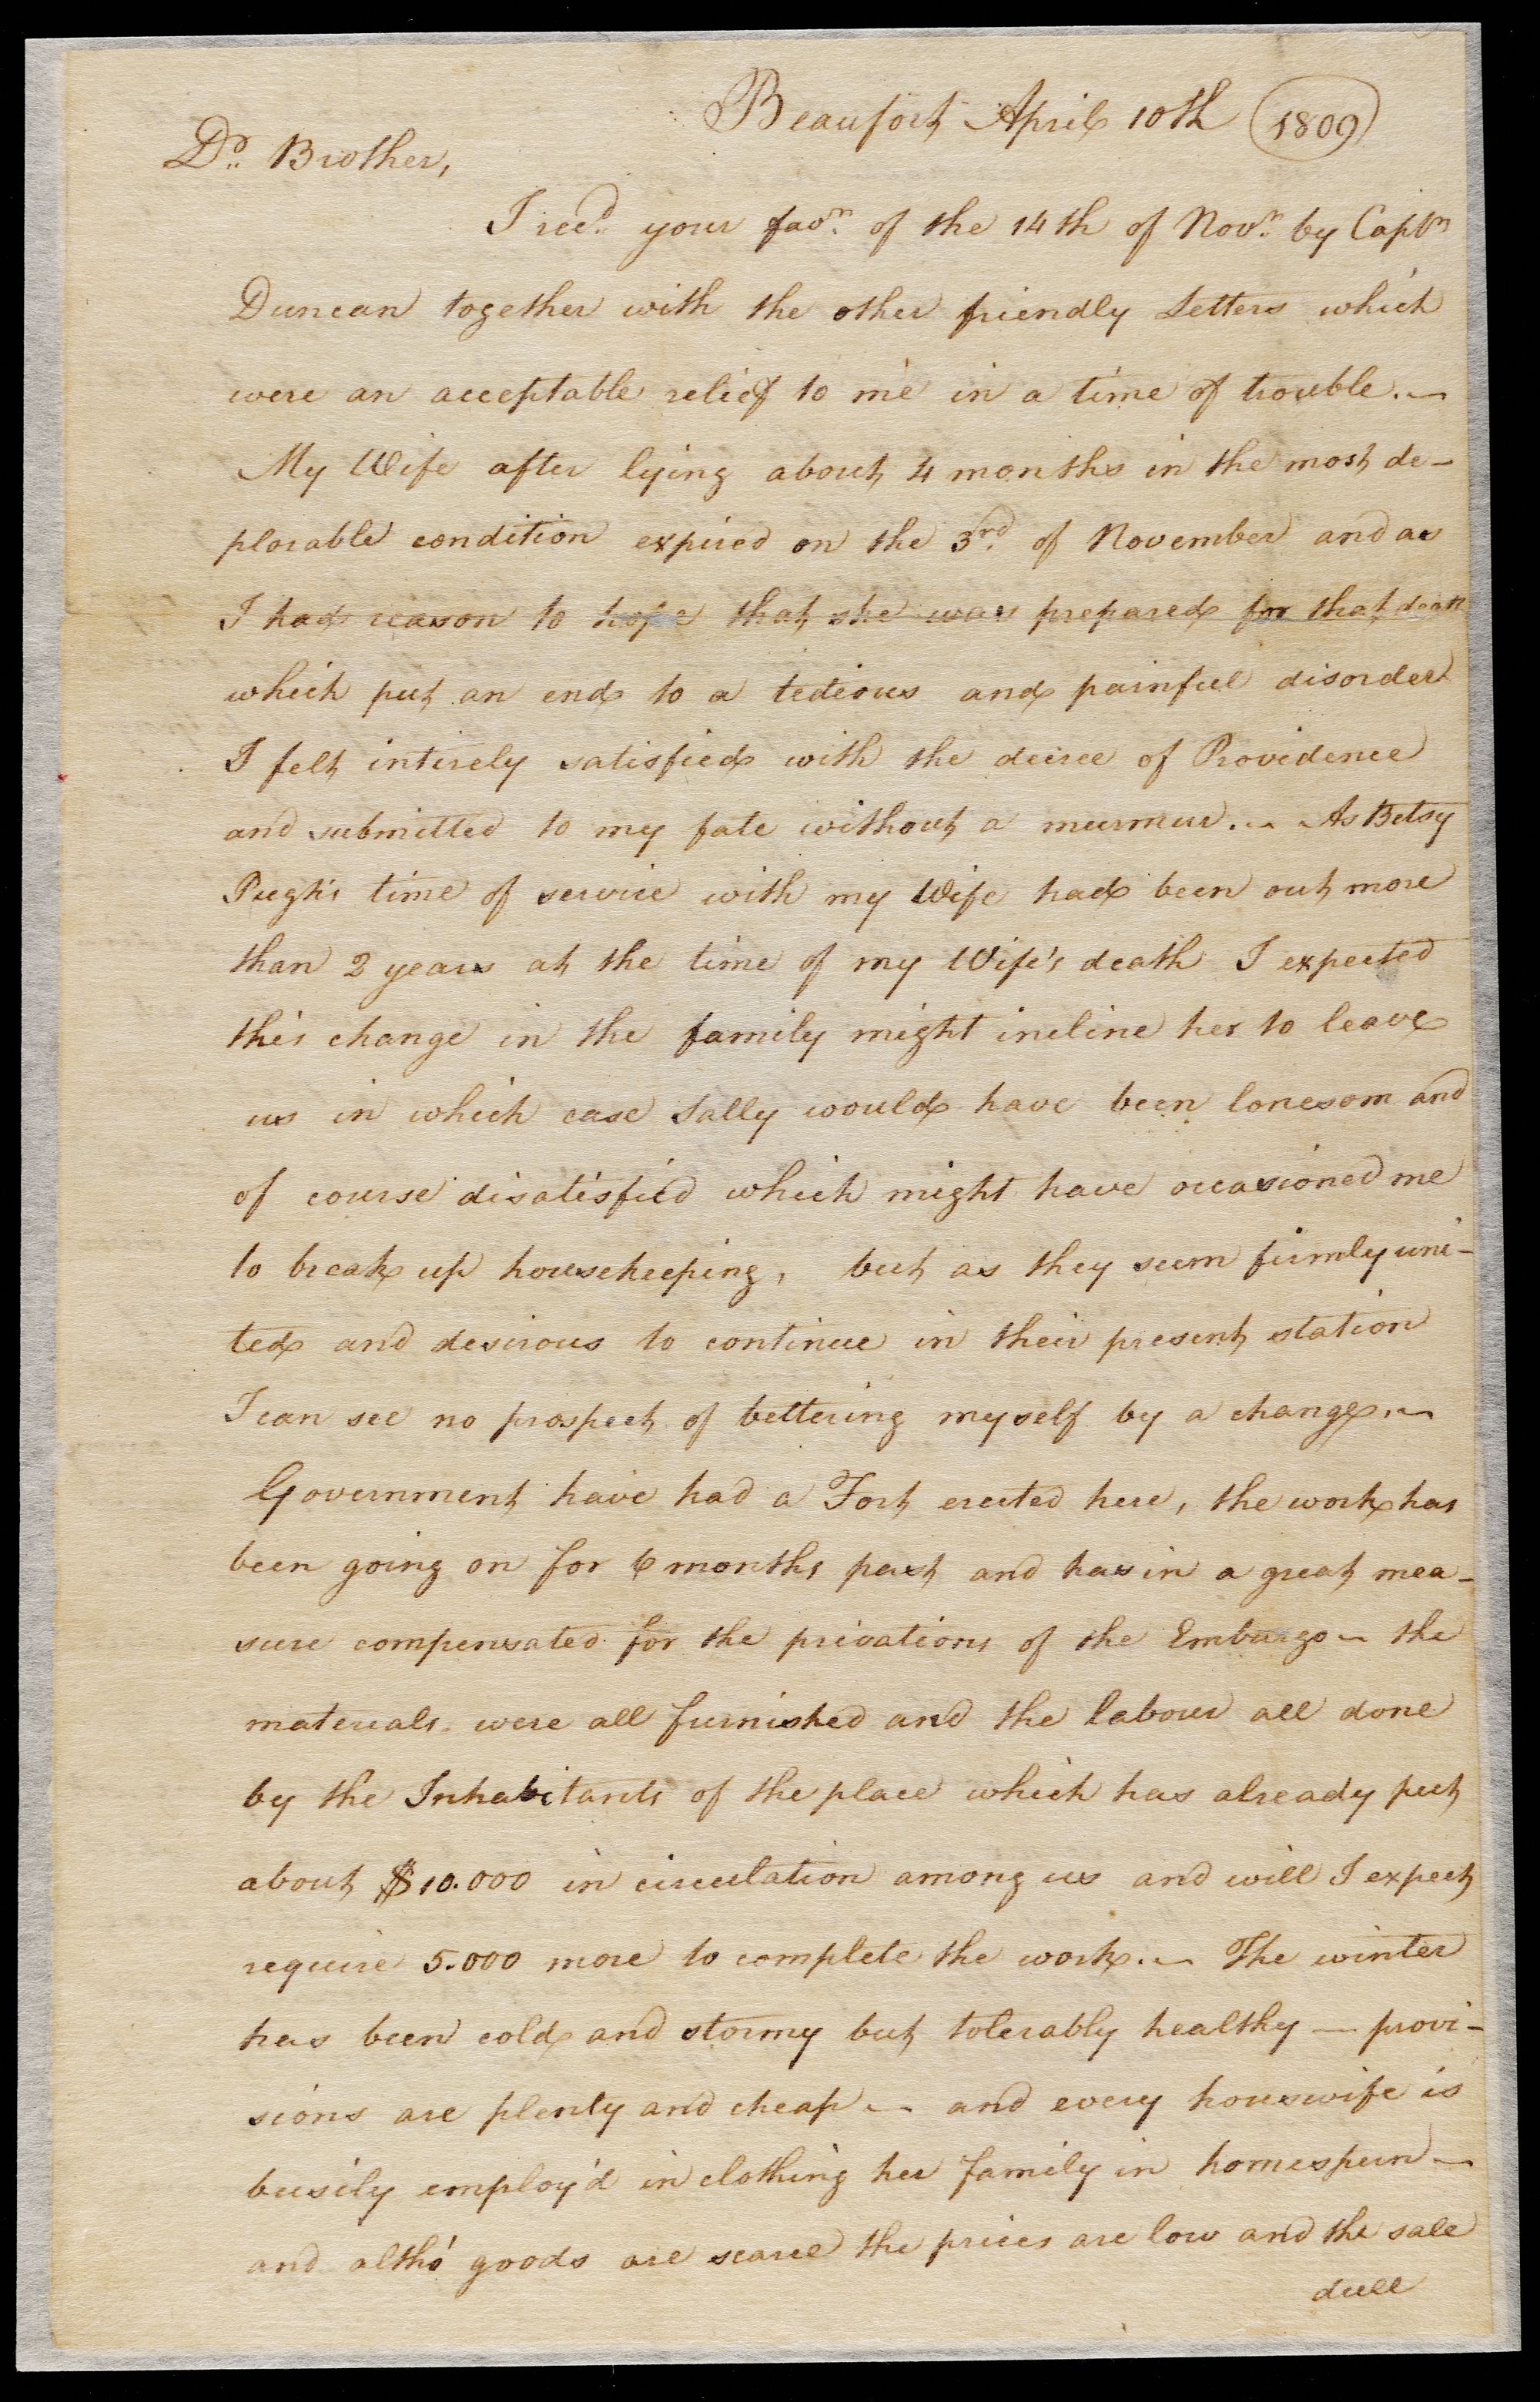 Beaufort April 10th 1809
Dr. Brother,
I recd. your favr. of the 14th of Novr. by Captn
Duncan together with the other friendly Letters which
were an acceptable relief to me in a time of trouble. —
My Wife after lying about 4 months in the most de-
plorable condition expired on the 3rd. of November and as
I had reason to hope that she was prepared for that death
which put an end to a tedious and painful disorder
I felt intirely satisfied with the decree of Providence
and submitted to my fate without a murmur. — As Betsy
Pugh's time of service with my Wife had been out more
than 2 years at the time of my Wife's death I expected
this change in the family might incline her to leave
us in which case Sally would have been lonesom and
of course disatisfied which might have occasioned me
to break up housekeeping, but as they seem firmly uni-
ted and desirous to continue in their present station
I can see no prospect of bettering myself by a change. —
Government have had a Fort erected here, the work has
been going on for 6 months past and has in a great mea-
sure compensated for the privations of the Embargo — the
materials were all furnished and the labour all done
by the Inhabitants of the place which has already put
about $10.000 in circulation among us and will I expect
require 5.000 more to complete the work. — The winter
has been cold and stormy but tolerably healthy — provi-
sions are plenty and cheap — and every houswife is
busily employ'd in clothing her family in homespun —
and altho' goods are scarce the prices are low and the sale
dull